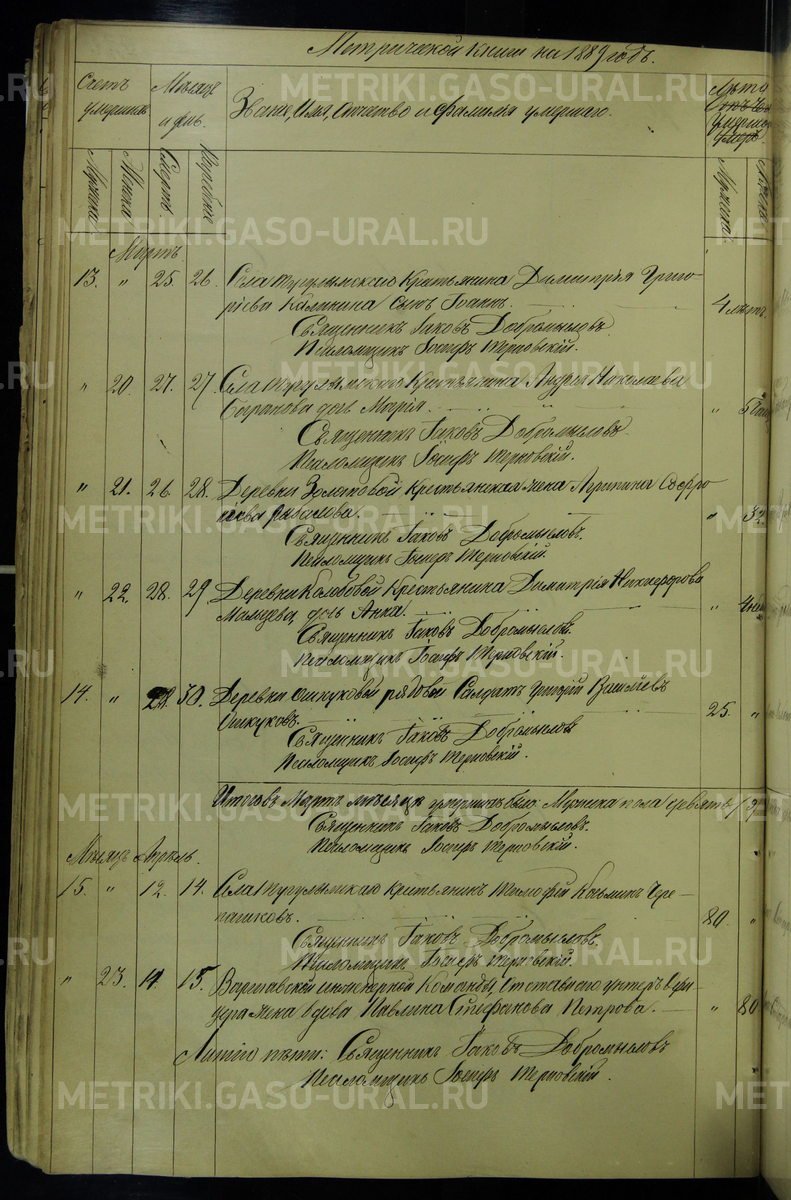 Метрической книги на 1889 годъ.
Счетъ умершихъ Мѣсяцъ и день. Званіе, Имя, Отчество и фамилія умершаго. Лѣта умершаго
Мужска. Женска Смерти. Погребенія Мужска. Женска
Мартъ.
13. " 25. 26. Села Тугулымскаго Крестьянина Димитрія Григо-
ріева Калинина сынъ Іоаннъ. 4 лѣтъ.
Священникъ Іаковъ Добромысловъ
Псаломщикъ Іосифъ Терновскій.
" 20. 27. 27. Села Тугулымскаго Крестьянина Андрея Николаева
дочь Марія. "
Священникъ Іаковъ Добромысловъ
Псаломщикъ Іосифъ Терновскій.
" 21. 26. 28. Деревни Золотовой Крестьянская жена Агрипина Софро
нієва " 32.
Священникъ Іаковъ Добромысловъ.
Псаломщикъ Іосифъ Терновскій.
" 22. 28. 29 Деревни Колобовой Крестьянина Димитрія Никифорова
Мальцева дочь Анна. "
Священникъ Іаковъ Добромысловъ.
Псаломщикъ Іосифъ Терновскій.
14. " 28. 30. Деревни Ошкуковой рядовой Солдатъ Григорій Васильевъ
Ошкуковъ. 25. "
Священникъ Іаковъ Добромысловъ
Псаломщикъ Іосифъ Терновскій.
Итого въ Мартѣ мѣсяцѣ умершихъ было: Мужска пола девять /9/
Священникъ Іаковъ Добромысловъ.
Псаломщикъ Іосифъ Терновскій.
Мѣсяцъ Апрѣль.
15. " 12. 14. Села Тугулымскаго Крестьянинъ Тимофей Козьминъ Чере-
пановъ. 80. "
Священникъ Іаковъ Добромысловъ.
Псаломщикъ Іосифъ Терновскій.
" 23. 14. 15. Варшавской инженерной Команды, отставнаго унтеръ офи
цера жена вдова Павлина Стефанова Петрова. " 80
Литію пѣли: Священникъ Іаковъ Добромысловъ
Псаломщикъ Іосифъ Терновскій.
METRIKI.GASO-URAL.RU